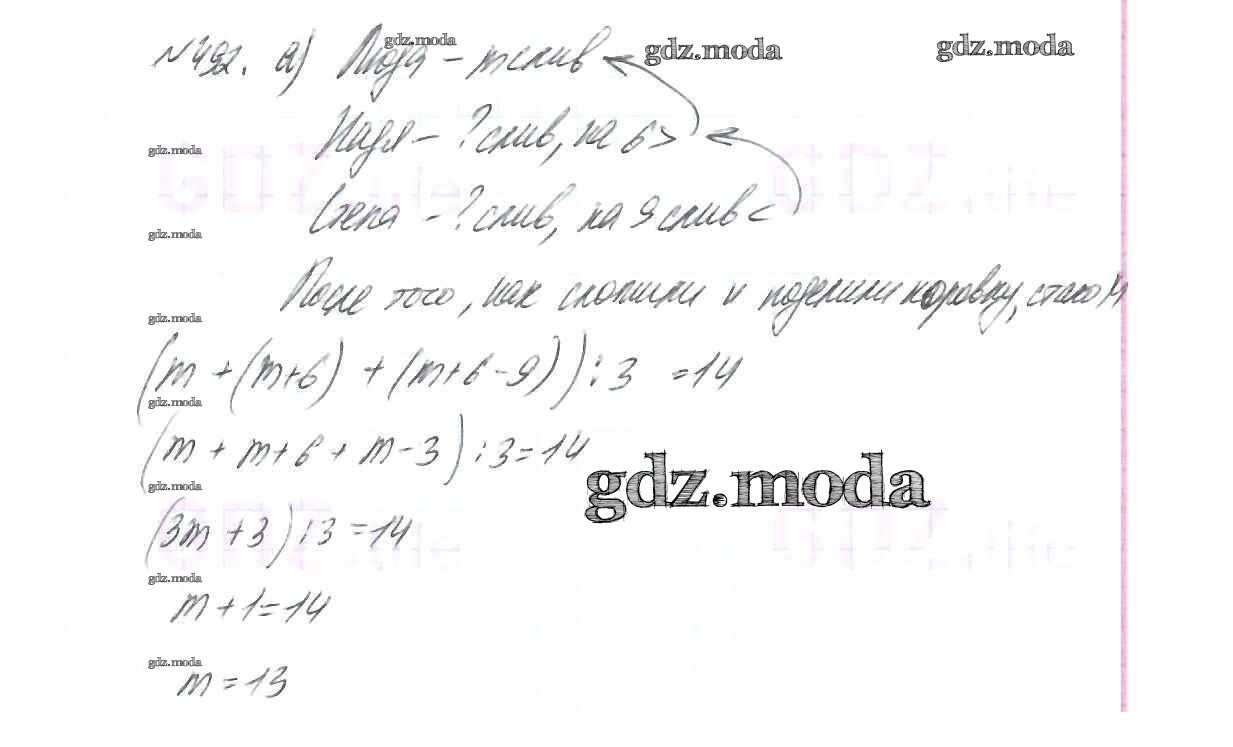 №492. а) Люда – m слив
gdz.moda gdz.moda gdz.moda
Надя – ? слив, на 6 >
gdz.moda
Степа – ? слив, на 9 слив <
gdz.moda
После того, как сложили и поделили поровну, стало 14
gdz.moda
(m + (m+6) + (m+6-9)) : 3 = 14
gdz.moda
(m + m+6 + m-3) : 3 = 14
gdz.moda
gdz.moda
(3m + 3) : 3 = 14
gdz.moda
m + 1 = 14
gdz.moda
m = 13